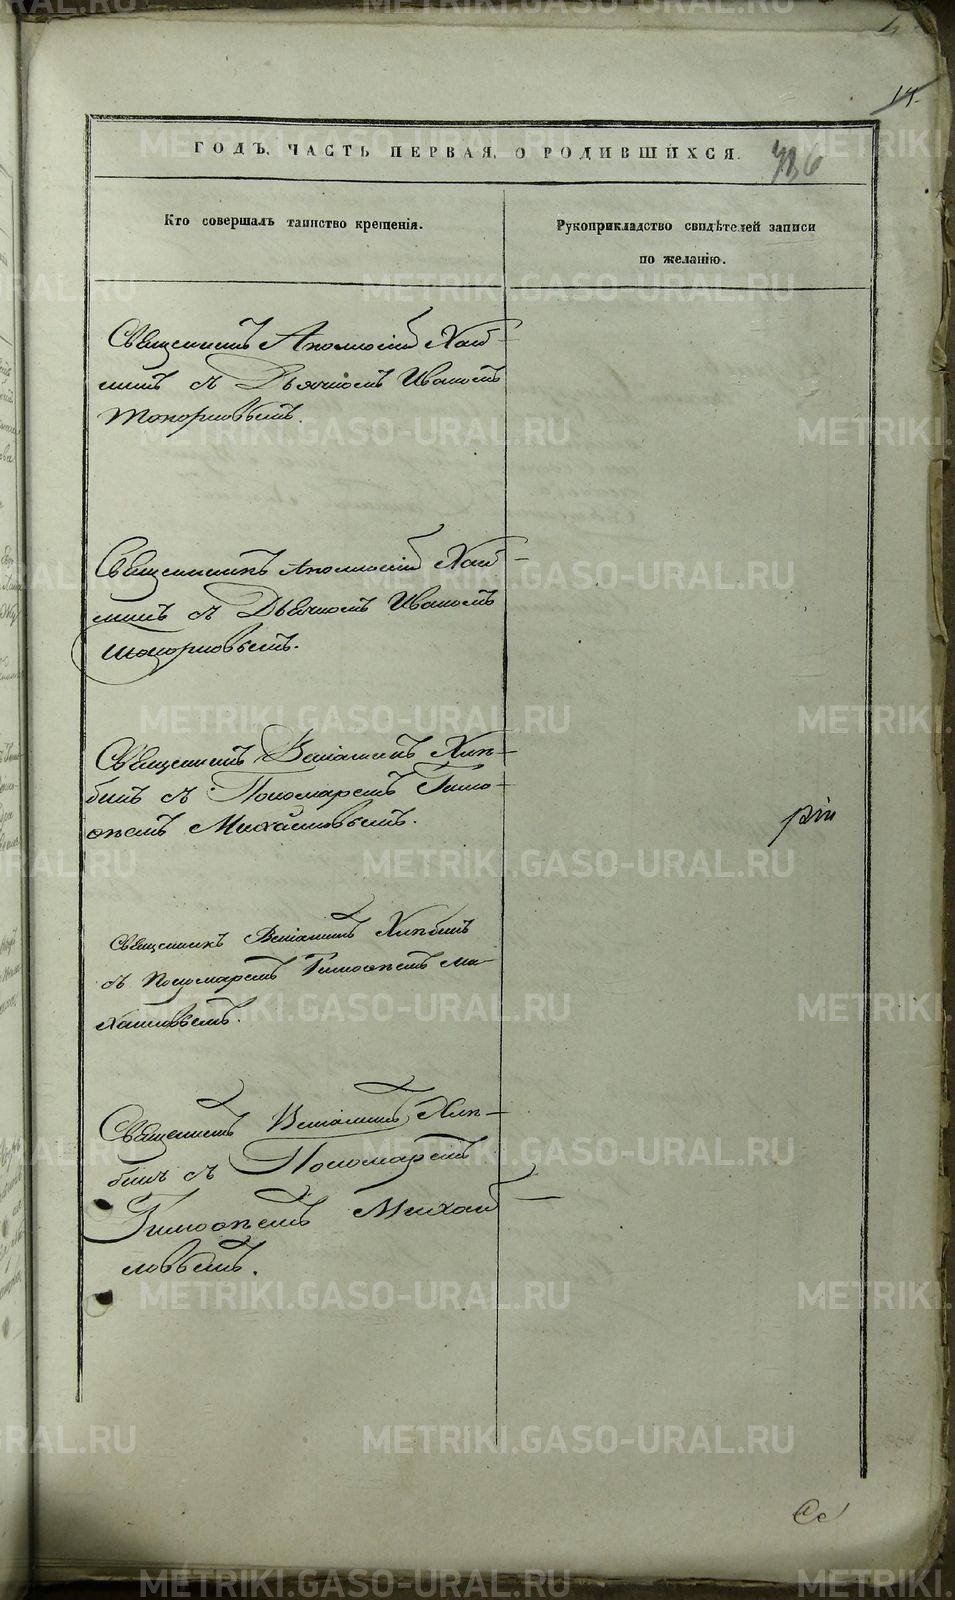 14.
ГОДЪ, ЧАСТЬ ПЕРВАЯ, О РОДИВШИХСЯ.
Кто совершалъ таинство крещенія.
Рукоприкладство свидѣтелей записи
по желанію.
Священникъ Аполлосій
с Дьячкомъ Иваномъ
Топорковымъ.
Священникъ Аполлосій
с Дьячкомъ Иваномъ
Топорковымъ.
Священникъ Веніаминъ Хлѣ-
бинъ съ Пономаремъ Тимо-
ѳеемъ Михайловымъ.
Священникъ Веніаминъ Хлѣбинъ
съ Пономаремъ Тимоѳеемъ Ми-
хайловымъ.
Священникъ Веніаминъ Хлѣ-
бинъ съ Пономаремъ
Тимоѳеемъ Михай-
ловымъ.
METRIKI.GASO-URAL.RU